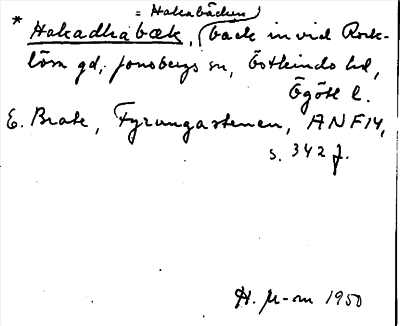 = Hakabäcken
* Hakadhabæk, (bäck invid Rock-
löm gd, Jonsbergs sn, Östkinds hd,
Ögötl l.
E. Brate, Fyrungastenen, ANF14,
s. 342 f.
H. M-m 1950